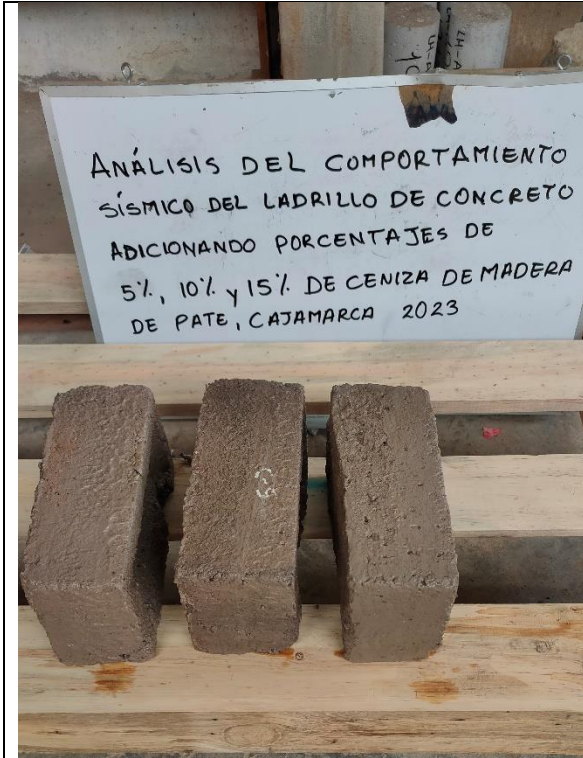 ANÁLISIS DEL COMPORTAMIENTO
SÍSMICO DEL LADRILLO DE CONCRETO
ADICIONANDO PORCENTAJES DE
5%, 10% y 15% DE CENIZA DE MADERA
DE PATE, CAJAMARCA 2023